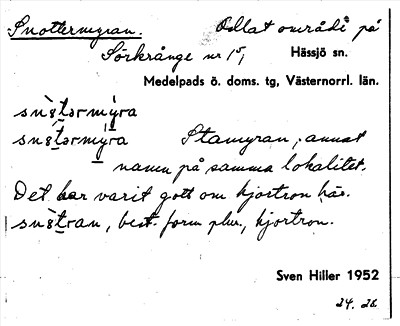 Snottermyran. Odlat område på
Sörkrånge nr 15, Hässjö sn.
Medelpads ö. doms. tg, Västernorrl. län.
snòtərmýra
snòtərmýra Stamyran, annat
namn på samma lokalitet.
Det har varit gott om hjortron här.
snòtran, best. form plur., hjortron.
Sven Hiller 1952
24. 26